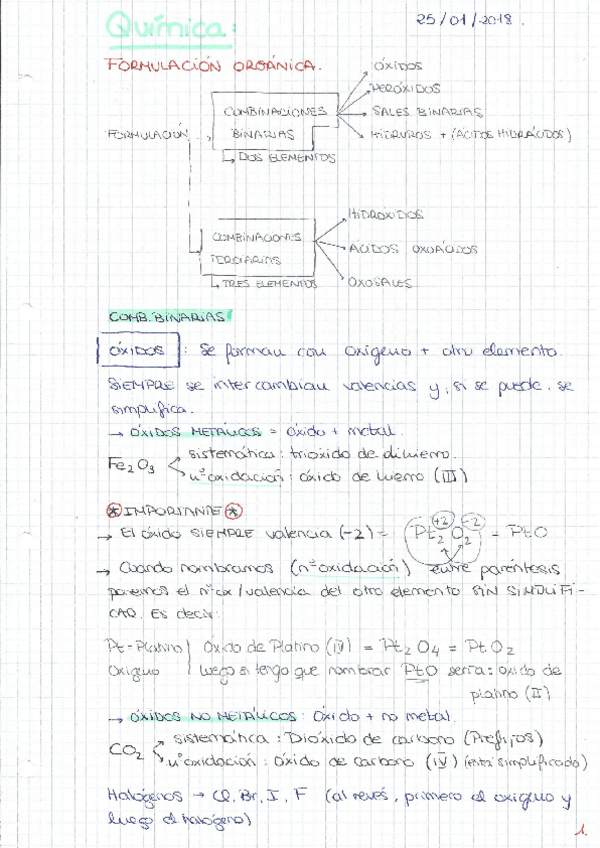 Química:
25/01/2018.
FORMULACIÓN ORGÁNICA.
FORMULACIÓN
COMBINACIONES
BINARIAS
DOS ELEMENTOS
ÓXIDOS
PERÓXIDOS
SALES BINARIAS
HIDRUROS + (ÁCIDOS HIDRÁCIDOS)
COMBINACIONES
TERCIARIAS
TRES ELEMENTOS
HIDRÓXIDOS
ÁCIDOS OXOÁCIDOS
OXOSALES
COMB. BINARIAS
ÓXIDOS : Se forman con oxígeno + otro elemento.
SIEMPRE se intercambian valencias y, si se puede, se
simplifica.
→ ÓXIDOS METÁLICOS = óxido + metal.
Fe2O3
sistemática: trióxido de dihierro.
nº oxidación: óxido de hierro (III)
* IMPORTANTE *
→ El óxido SIEMPRE valencia (-2) = Pt2+2 O2-2 = PtO
→ Cuando nombramos (nº oxidación) entre paréntesis
ponemos el nº ox/valencia del otro elemento SIN SIMPLIFI-
CAR. Es decir:
Pt - Platino | Oxido de Platino (IV) = Pt2O4 = PtO2
Oxigeno | luego si tengo que nombrar PtO sería: oxido de
platino (II)
→ ÓXIDOS NO METÁLICOS: Óxido + no metal.
CO2
sistemática: Dióxido de carbono (Prefijos)
nº oxidación: óxido de carbono (IV) (está simplificado)
Halógenos → Cl, Br, I, F (al revés, primero el oxigeno y
luego el halógeno)
1.